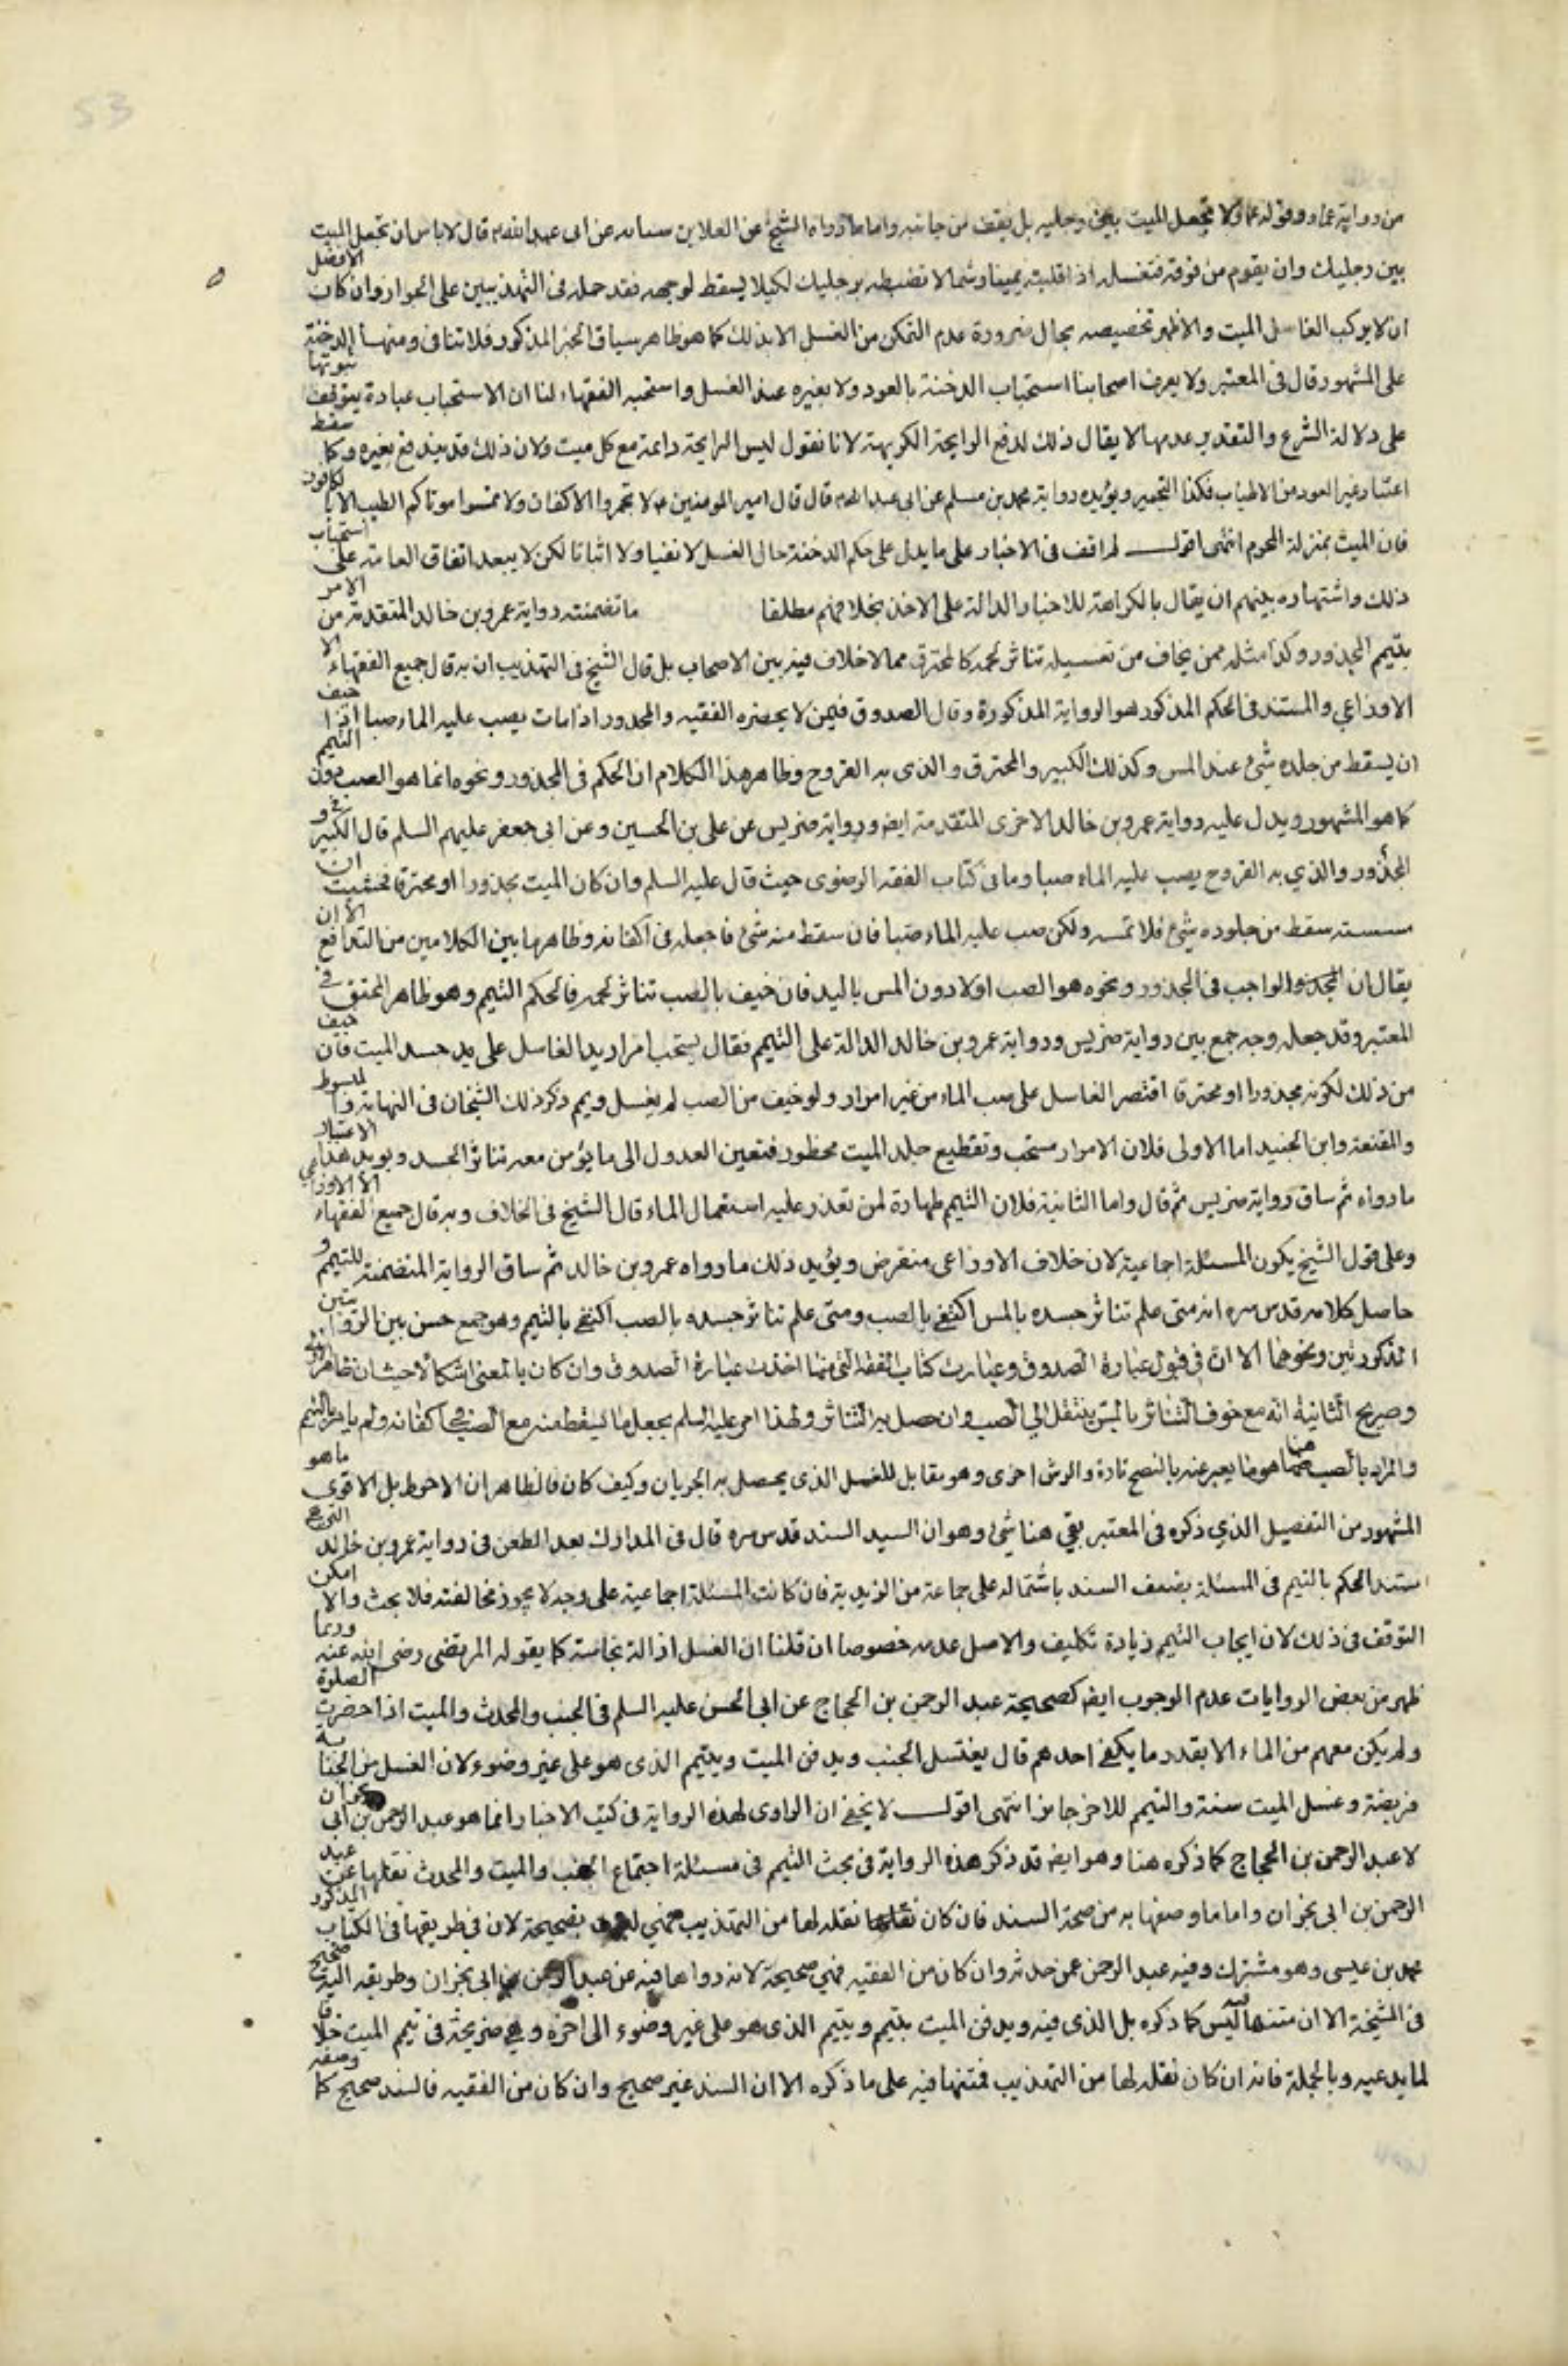 53
من رواية عمار وقوله عمار ولا يجعل الميت بين رجليه بل يقف من جانبه واما ما رواه الشيخ عن العلا بن سيابه عن ابى عبد الله ع قال لا باس ان تجعل الميت
بين رجليك وان يقوم من فوقه فتغسله اذا قلبته يمينا وشمالا تضبطه برجليك لكيلا يسقط لوجهه فقد حمله فى التهذيبين على الجواز وان كان الافضل
ان لا يركب الغاسل الميت والاظهر تخصيصه بحال ضرورة عدم التمكن من الغسل الا بذلك كما هو ظاهر سياق الخبر المذكور فلا تنافى ومنها الدخنة
على المشهور قال فى المعتبر ولا يعرف اصحابنا استحباب الدخنة بالعود ولا بغيره عند الغسل واستحبه الفقهاء لنا ان الاستحباب عبادة يتوقف ثبوتها
على دلالة الشرع والتقدير عدمها لا يقال ذلك لدفع الرايحة الكريهة لانا نقول ليس الرايحة دايمة مع كل ميت ولان ذلك قد يندفع بغيره وكما سقط
اعتبار غير العود من الاطياب فكذا التجمير ويؤيده رواية محمد بن مسلم عن ابى عبد الله ع قال قال امير المومنين ع لا تجمروا الاكفان ولا تمسوا موتاكم الطيب الا بالكافور
فان الميت بمنزلة المحرم انتهى اقول لم اقف فى الاخبار على ما يدل على حكم الدخنة حال الغسل لا نفيا ولا اثباتا لكن لا يبعد اتفاق العامة على استحباب
ذلك واشتهاره بينهم ان يقال بالكراهة للاخبار الدالة على الاخذ بخلافهم مطلقا ما تضمنته رواية عمرو بن خالد المتقدمة من الامر
بتيمم المجذور وكذا مثله ممن يخاف من تغسيله تناثر لحمه كالمحترق مما لا خلاف فيه بين الاصحاب بل قال الشيخ فى التهذيب ان به قال جميع الفقهاء الا
الاوزاعي والمستند فى الحكم المذكور هو الرواية المذكورة وقال الصدوق فيمن لا يحضره الفقيه والمجدور اذا مات يصب عليه الماء صبا اذا خيف
ان يسقط من جلده شئ عند المس وكذلك الكبير والمحترق والذى به القروح وظاهر هذا الكلام ان الحكم فى المجذور ونحوه انما هو الصب دون التيمم
كما هو المشهور ويدل عليه رواية عمرو بن خالد الاخرى المتقدمة ايض ورواية ضريس عن على بن الحسين وعن ابى جعفر عليهم السلم قال الكبير و
المجذور والذي به القروح يصب عليه الماء صبا وما فى كتاب الفقه الرضوى حيث قال عليه السلم وان كان الميت مجذورا او محترقا فخشيت ان
مسسته سقط من جلوده شئ فلا تمسه ولكن صب عليه الماء صبا فان سقط منه شئ فاجعله فى اكفانه وظاهرها بين الكلامين من التدافع الا ان
يقال ان الواجب فى المجذور ونحوه هو الصب اولا دون المس باليد فان خيف بالصب تناثر لحمه فالحكم التيمم وهو ظاهر المحقق فى
المعتبر وقد جعله وجه جمع بين رواية ضريس ورواية عمرو بن خالد الدالة على التيمم فقال يستحب امرار يد الغاسل على جسد الميت فان خيف
من ذلك لكونه مجدورا او محترقا اقتصر الغاسل على صب الماء من غير امرار ولو خيف من الصب لم يغسل ويمم ذكر ذلك الشيخان فى النهاية والمبسوط
والمقنعة وابن الجنيد اما الاولى فلان الامرار مستحب وتقطيع جلد الميت محظور فتعين العدول الى ما يؤمن معه تناثر الجسد ويويد هذا الاعتبار
ما رواه ثم ساق رواية ضريس ثم قال واما الثانية فلان التيمم طهارة لمن تعذر عليه استعمال الماء قال الشيخ فى الخلاف وبه قال جميع الفقهاء الا الاوزاعي
وعلى قول الشيخ يكون المسئلة اجماعية لان خلاف الاوزاعى منقرض ويؤيد ذلك ما رواه عمرو بن خالد ثم ساق الرواية المتضمنة للتيمم و
حاصل كلامه قدس سره انه متى علم تناثر جسده بالمس اكتفى بالصب ومتى علم تناثر جسده بالصب اكتفى بالتيمم وهو جمع حسن بين الروايتين
المذكورتين ونحوهما الا ان فى قبول عبارة الصدوق وعبارت كتاب الفقه التى منها اخذت عبارة الصدوق وان كان بالمعنى اشكالا حيث ان ظاهر الاولى
وصريح الثانية انه مع خوف التناثر بالمس ينتقل الى الصب وان حصل به التناثر ولهذا امر عليه السلم بجعل ما يسقط منه مع الصب فى اكفانه ولم يامر بالتيمم
والمراد بالصب هنا هو ما يعبر عنه بالنضح تارة والرش اخرى وهو مقابل للغسل الذى يحصل به الجريان وكيف كان فالظاهر ان الاحوط بل الاقوى ما هو
المشهور من التفصيل الذي ذكره فى المعتبر بقي هنا شئ وهو ان السيد السند قدس سره قال فى المدارك بعد الطعن فى رواية عمرو بن خالد التى هى
مستند الحكم بالتيمم فى المسئلة بضعف السند باشتماله على جماعة من الزيدية فان كانت المسئلة اجماعية على وجه لا يجوز مخالفته فلا بحث والا امكن
التوقف فى ذلك لان ايجاب التيمم زيادة تكليف والاصل عدمه خصوصا ان قلنا ان الغسل ازالة نجاسة كما يقوله المرتضى رضى الله عنه وربما
ظهر من بعض الروايات عدم الوجوب ايض كصحيحة عبد الرحمن بن الحجاج عن ابى الحسن عليه السلم فى الجنب والمحدث والميت اذا حضرت الصلوة
ولم يكن معهم من الماء الا بقدر ما يكفى احدهم قال يغتسل الجنب ويدفن الميت ويتيمم الذى هو على غير وضوء لان الغسل من الجنابة
فريضة وغسل الميت سنة والتيمم للاخر جايز انتهى اقول لا يخفى ان الراوى لهذه الرواية فى كتب الاخبار انما هو عبد الرحمن بن ابى نجران
لا عبد الرحمن بن الحجاج كما ذكره هنا وهو ايض قد ذكر هذه الرواية فى بحث التيمم فى مسئلة اجتماع الجنب والميت والمحدث نقلها عن عبد
الرحمن بن ابى نجران واما ما وصفها به من صحة السند فان كان نقله لها من التهذيب فهي ليست بصحيحة لان فى طريقها فى الكتاب المذكور
محمد بن عيسى وهو مشترك وفيه عبد الرحمن عمن حدثه وان كان من الفقيه فهي صحيحة لانه رواها فيه عن عبد الرحمن بن ابى نجران وطريقه اليه صحيح
فى المشيخة الا ان متنها ليس كما ذكره بل الذى فيه ويدفن الميت بتيمم ويتيمم الذى هو على غير وضوء الى اخره وهى صريحة فى تيمم الميت خلافا
لما يدعيه وبالجملة فانه ان كان نقله لها من التهذيب فمتنها فيه على ما ذكره الا ان السند غير صحيح وان كان من الفقيه فالسند صحيح كما وصفه